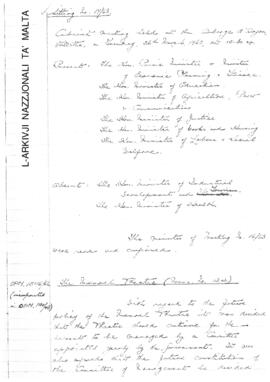 Meeting No. 17/63
L-ARKIVJI NAZZJONALI TA' MALTA
Cabinet Meeting held at the Auberge d'Aragon
Valletta, on Tuesday, 26th March, 1963, at
Present: The Hon. Prime Minister & Minister
of Economic Planning & Finance
The Hon. Minister of Education
The Hon. Minister of Agriculture, Power
& Communications
The Hon. Minister of Justice
The Hon. Minister of Works and Housing
The Hon. Minister of Labour & Social
Welfare.
Absent: The Hon. Minister of Industrial
Development and Tourism
The Hon. Minister of Health
The minutes of Meeting No. 16/63
were read and confirmed.
The Manoel Theatre (Memo No.
With regard to the future
policy of the Manoel Theatre it was decided
that the Theatre should continue for the
present to be managed by a Committee
appointed by the Government. It was
also agreed that the future constitution of
the Committee of Management be decided